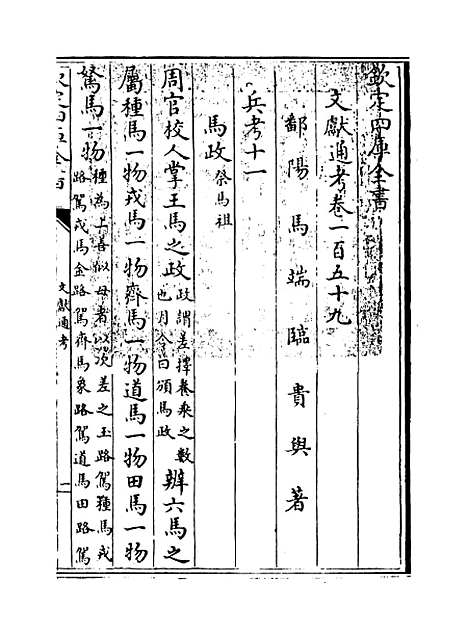 欽定四庫全書
文獻通考卷一百五十九
鄱陽馬端臨貴與著
兵考十一
馬政祭馬祖
周官校人掌王馬之政政謂差擇養乘之數也月令曰頒馬政辨六馬之
屬種馬一物戎馬一物齊馬一物道馬一物田馬一物
駑馬一物種為上善似母者以次差之玉路駕種馬戎路駕戎馬金路駕齊馬象路駕道馬田路駕
文獻通考
一